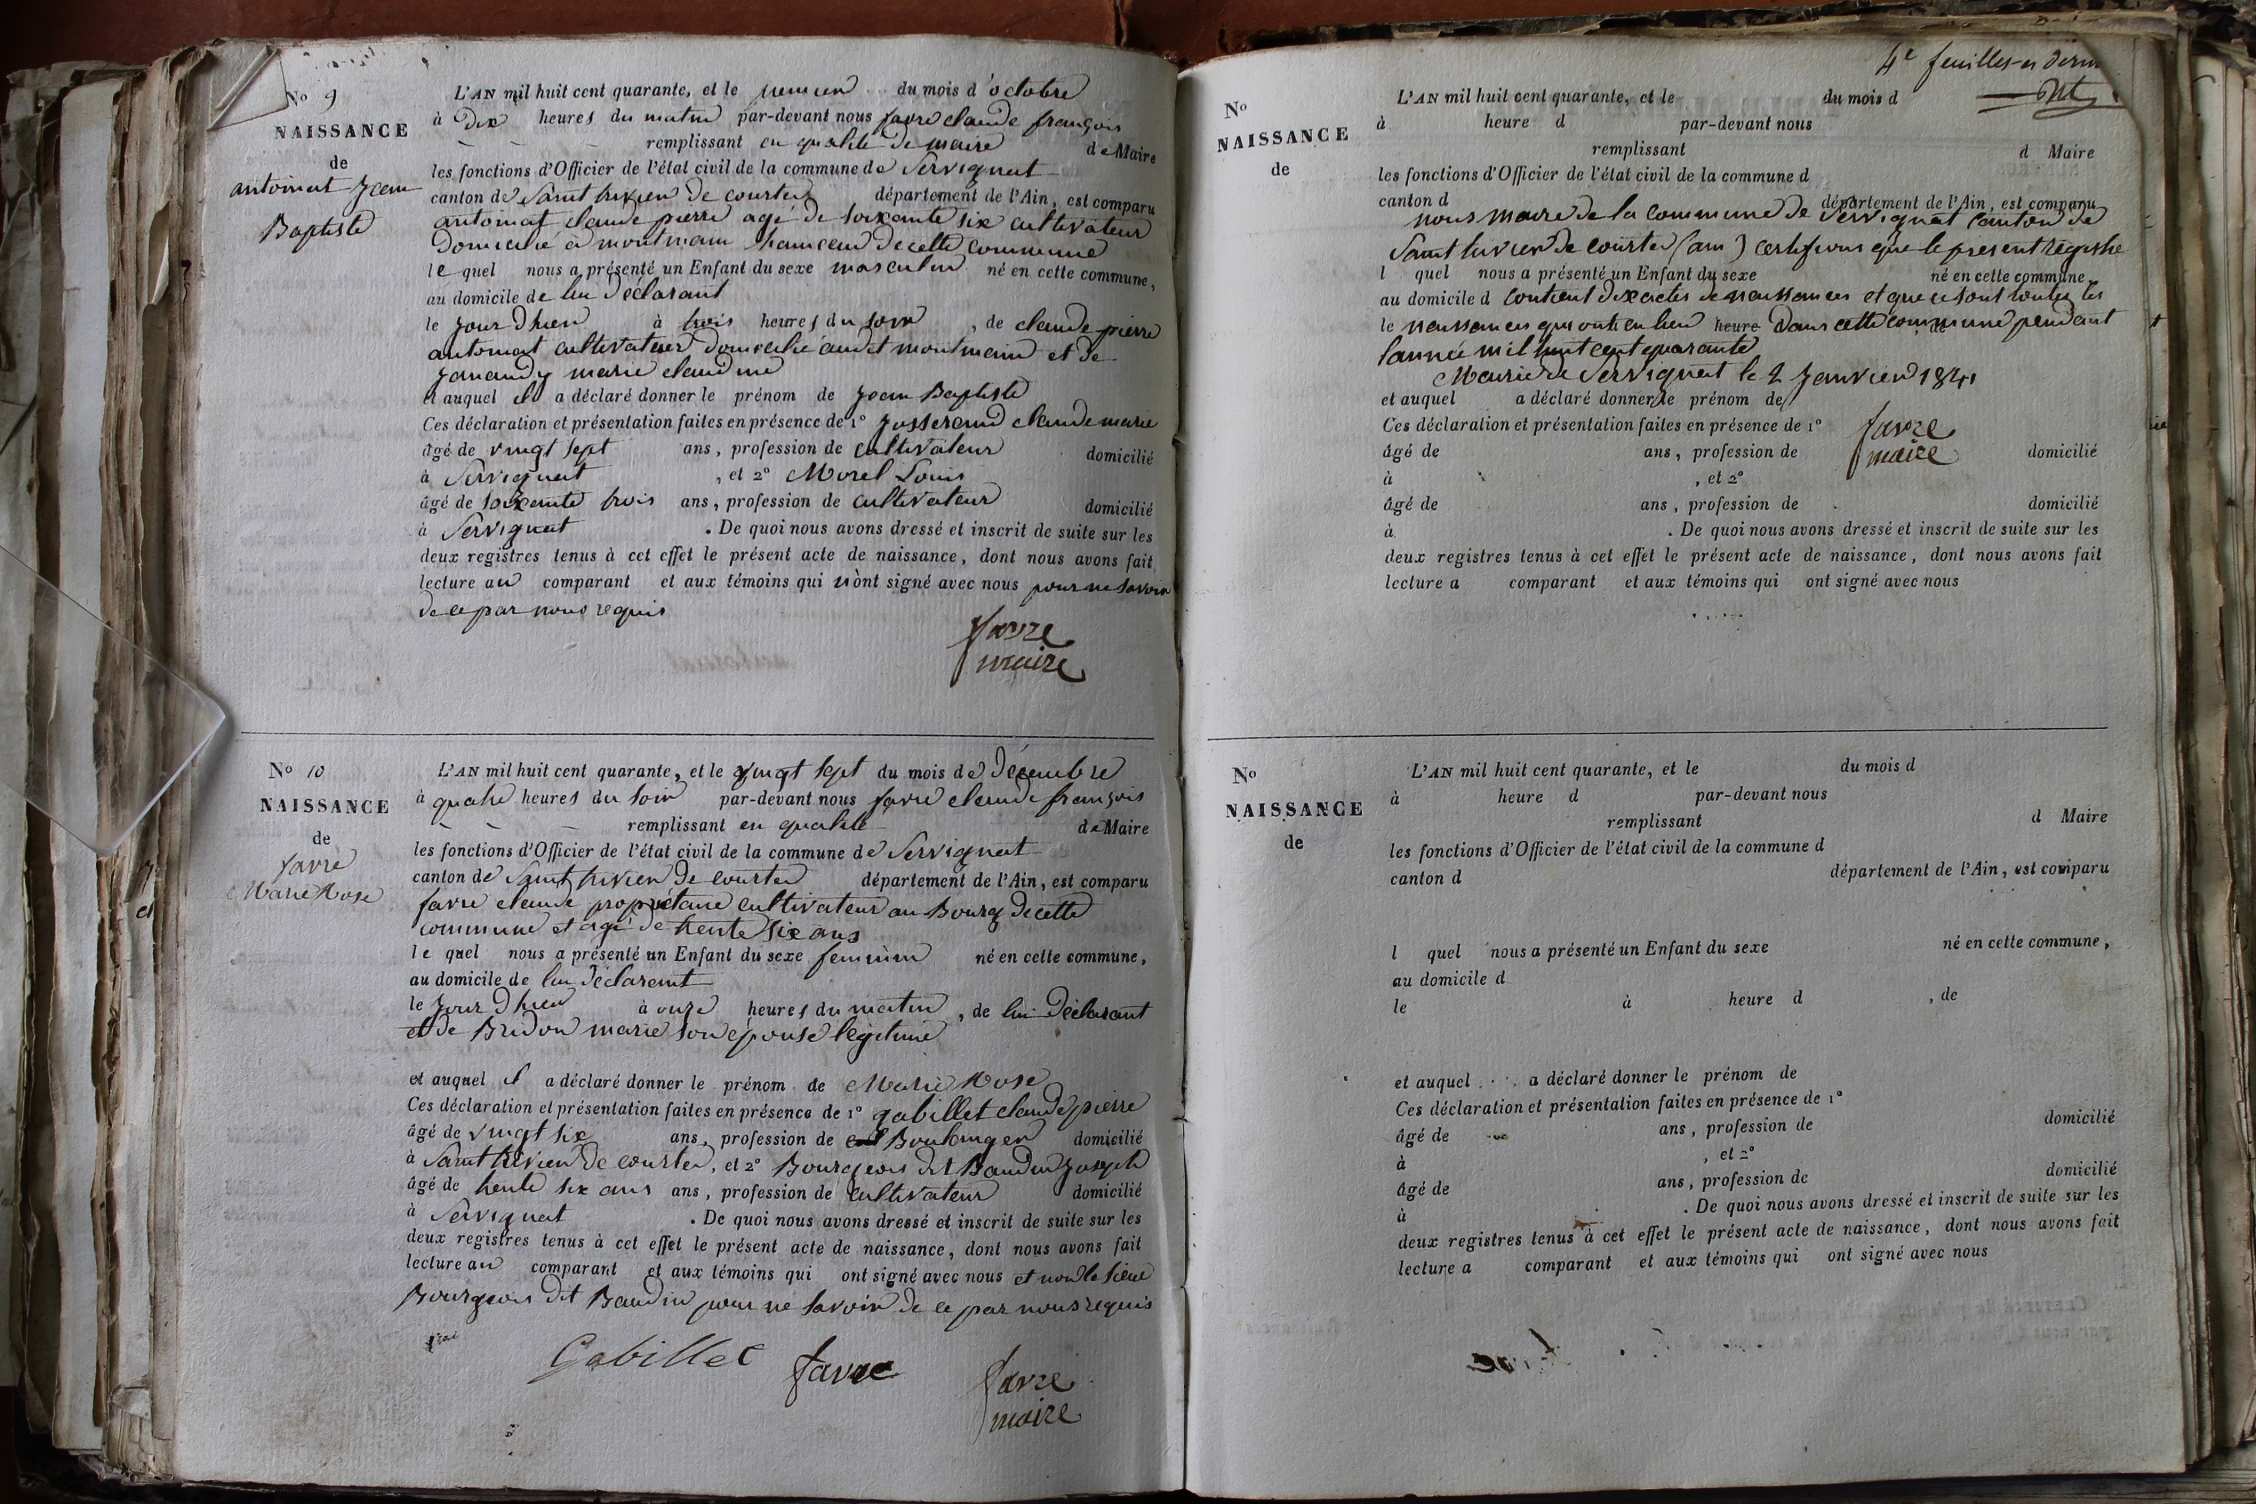 No 9
NAISSANCE
de
antoinat Jean
Baptiste
L'AN mil huit cent quarante, et le premier du mois d'octobre
à dix heures du matin par-devant nous favre claude françois
remplissant en qualité de maire de Maire
les fonctions d'Officier de l'état civil de la commune de Servignat
canton de Saint trivier de courtes département de l'Ain, est comparu
antoinat claude pierre agé de soixante six cultivateur
Domicilié à montmain hameau de cette commune
le quel nous a présenté un Enfant du sexe masculin né en cette commune,
au domicile de lui Déclarant
le Jour D'hier à trois heures du soir, de claude pierre
antoinat cultivateur domicilié audit montmain et de
Janaudy marie claudine
et auquel il a déclaré donner le prénom de Jean Baptiste
Ces déclaration et présentation faites en présence de 1° Josserand claude marie
âgé de vingt sept ans, profession de cultivateur domicilié
à Servignat, et 2° Morel Louis
âgé de soixante trois ans, profession de cultivateur domicilié
à Servignat. De quoi nous avons dressé et inscrit de suite sur les
deux registres tenus à cet effet le présent acte de naissance, dont nous avons fait
lecture au comparant et aux témoins qui n'ont signé avec nous pour ne savoir
de ce par nous requis
favre
maire
No 10
NAISSANCE
de
favre
Marie Rose
L'AN mil huit cent quarante, et le vingt sept du mois de Décembre
à quatre heures du soir par-devant nous favre claude françois
remplissant en qualité de Maire
les fonctions d'Officier de l'état civil de la commune de Servignat
canton de Saint trivier de courtes département de l'Ain, est comparu
favre claude propriétaire cultivateur au Bourg de cette
commune et agé de trente six ans
le quel nous a présenté un Enfant du sexe feminin né en cette commune,
au domicile de lui Déclarant
le Jour D'hier à onze heures du matin, de lui Déclarant
et de Bridon marie son épouse légitime
et auquel il a déclaré donner le prénom de Marie Rose
Ces déclaration et présentation faites en présence de 1° gabillet claude pierre
âgé de vingt six ans, profession de Boulanger domicilié
à Saint trivier de courtes, et 2° Bourgeois dit Baudin Joseph
âgé de trente six ans ans, profession de cultivateur domicilié
à Servignat. De quoi nous avons dressé et inscrit de suite sur les
deux registres tenus à cet effet le présent acte de naissance, dont nous avons fait
lecture au comparant et aux témoins qui ont signé avec nous et non le sieur
Bourgeois dit Baudin pour ne savoir de ce par nous requis
Gabillet favre favre
maire
4e feuillet et dernier
No
NAISSANCE
de
L'AN mil huit cent quarante, et le du mois d
à heure d par-devant nous
remplissant d Maire
les fonctions d'Officier de l'état civil de la commune d
canton d département de l'Ain, est comparu
nous maire de la commune de Servignat canton de
Saint trivier de courtes (ain) certifions que le present registre
l quel nous a présenté un Enfant du sexe né en cette commune,
au domicile d contient dix actes de naissances et que ce sont toutes les
le naissances qui ont eu lieu heure dans cette commune pendant
l'année mil huit cent quarante
Mairie de Servignat le 2 Janvier 1841
et auquel a déclaré donner le prénom de
Ces déclaration et présentation faites en présence de 1° favre
âgé de ans, profession de maire domicilié
à , et 2°
âgé de ans, profession de domicilié
à . De quoi nous avons dressé et inscrit de suite sur les
deux registres tenus à cet effet le présent acte de naissance, dont nous avons fait
lecture a comparant et aux témoins qui ont signé avec nous
No
NAISSANCE
de
L'AN mil huit cent quarante, et le du mois d
à heure d par-devant nous
remplissant d Maire
les fonctions d'Officier de l'état civil de la commune d
canton d département de l'Ain, est comparu
l quel nous a présenté un Enfant du sexe né en cette commune,
au domicile d
le à heure d , de
et auquel a déclaré donner le prénom de
Ces déclaration et présentation faites en présence de 1°
âgé de ans, profession de domicilié
à , et 2°
âgé de ans, profession de domicilié
à . De quoi nous avons dressé et inscrit de suite sur les
deux registres tenus à cet effet le présent acte de naissance, dont nous avons fait
lecture a comparant et aux témoins qui ont signé avec nous